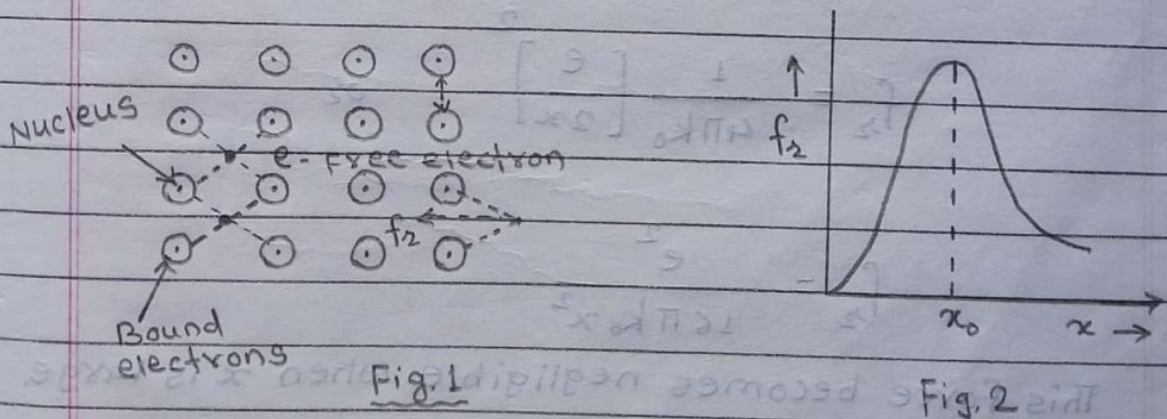 Nucleus
e- Free electron
f₂
Bound
electrons
Fig. 1
↑
f₂
x₀
x →
Fig. 2